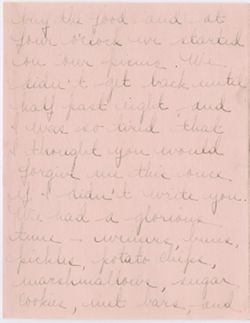 buy the food and at
four o'clock we started
on our picnic. We
didn't get back until
half past eight and
I was so tired that
I thought you would
forgive me this once
if I didn't write you.
We had a glorious
time – weiners, buns,
pickles, potato chips,
marshmallows, sugar
cookies, nut bars, and